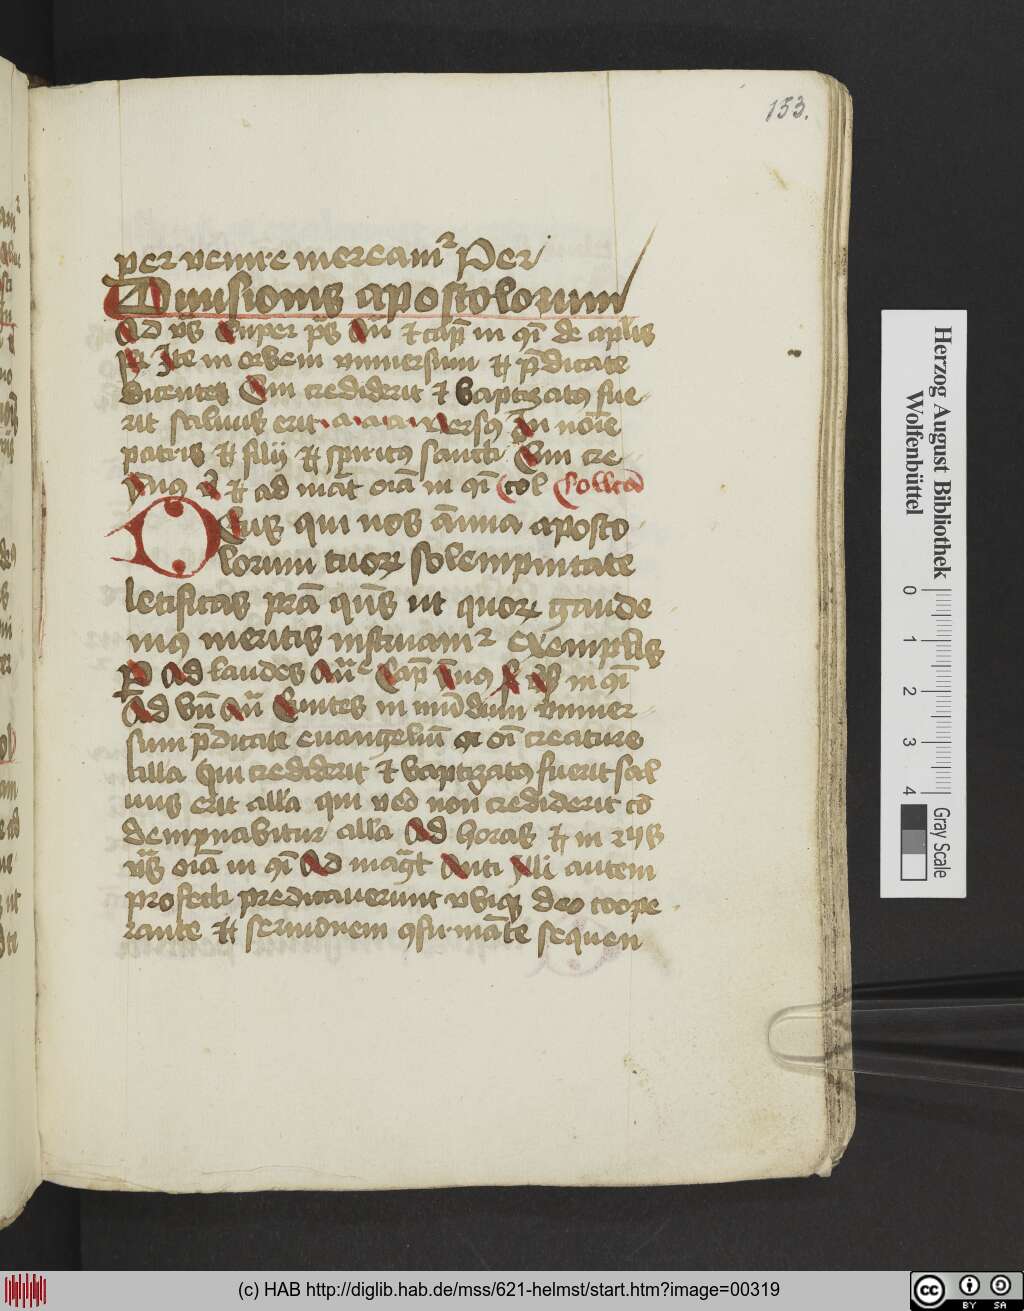 153.
per venire mereamr Per
Diuisionis apostolorum
Ad vs Super ps An et cap in qi de aplis
R Ite in orbem vniuersum et pdicate
dicentes Qui crediderit et baptizatus fue
rit saluus erit a a a a versus In noie
patris et filij et spiritus sancti Qui cre
ad mat oia in qi col Collecta
Deus qui nos annua aposto
lorum tuor solempnitate
letificas pra qus ut quor gaude
mus meritis instruamr exemplis
Ad laudes An Cap in qi
Ad vn An Euntes in mudum vniuer
sum pdicate euangeliu oi creature
alla Qui crediderit et baptizatus fuerit sal
uus erit alla qui vero non crediderit co
dempnabitur alla Ad horas et in 2 vs
vs oia in qi Ad magt Anti Illi autem
profecti predicauerunt vbique deo coope
rante et sermonem confirmate sequen
Herzog August Bibliothek
Wolfenbüttel
0 1 2 3 4
Gray Scale
(c) HAB http://diglib.hab.de/mss/621-helmst/start.htm?image=00319
cc BY SA